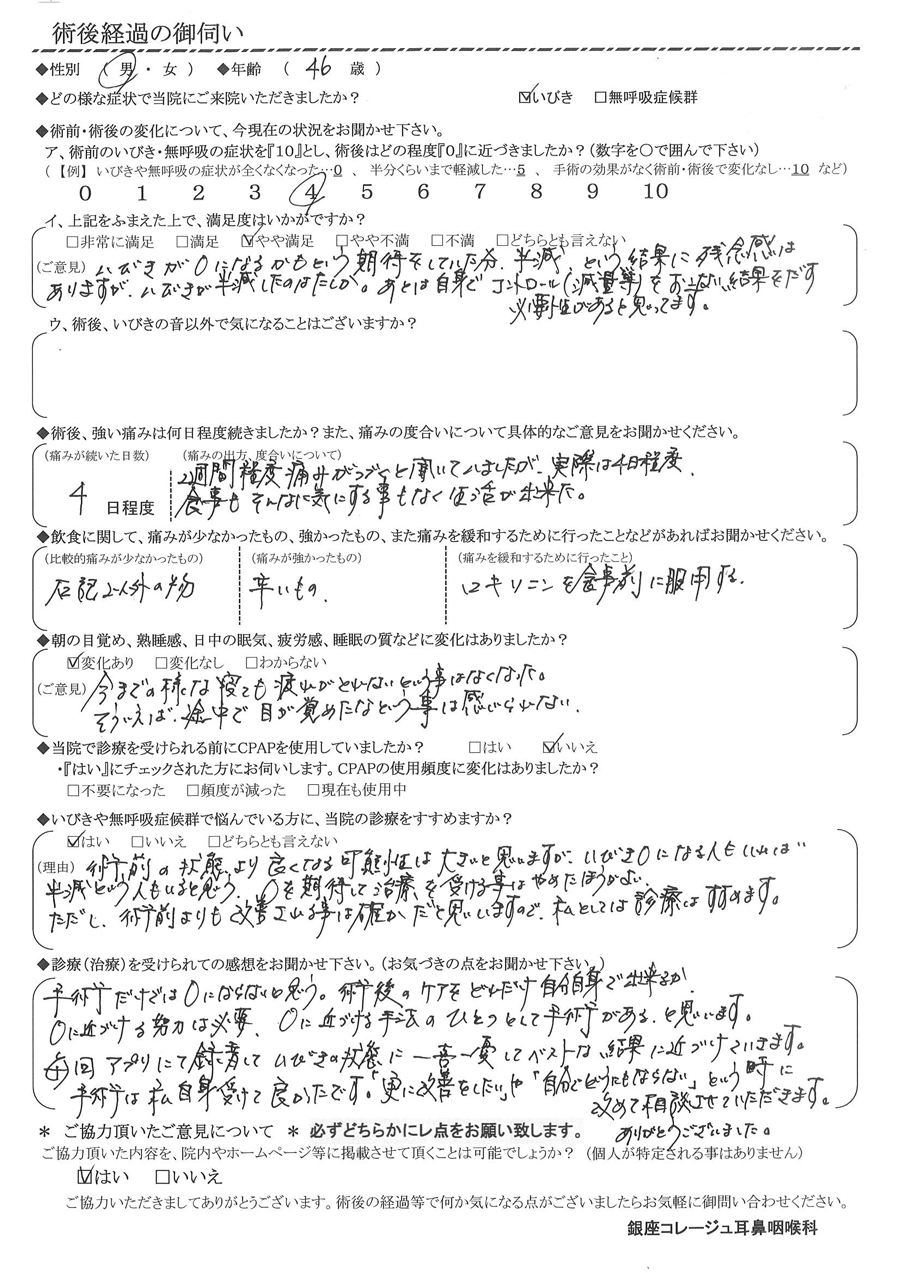 術後経過の御伺い
◆性別 （ 男 ・ 女 ） ◆年齢 （ 46 歳 ）
◆どの様な症状で当院にご来院いただきましたか？ ☑いびき □無呼吸症候群
◆術前・術後の変化について、今現在の状況をお聞かせ下さい。
ア、術前のいびき・無呼吸の症状を『10』とし、術後はどの程度『0』に近づきましたか？（数字を○で囲んで下さい）
（【例】 いびきや無呼吸の症状が全くなくなった…0 、 半分くらいまで軽減した…5 、 手術の効果がなく術前・術後で変化なし…10 など）
0 1 2 3 4 5 6 7 8 9 10
イ、上記をふまえた上で、満足度はいかがですか？
□非常に満足 □満足 ☑やや満足 □やや不満 □不満 □どちらとも言えない
（ご意見） いびきが0になるかもという期待をしていた分、半減、という結果に残念感は
ありますが、いびきが半減したのはたしか。あとは自身でコントロール（減量等）をおこない結果をだす
必要性があると思ってます。
ウ、術後、いびきの音以外で気になることはございますか？
◆術後、強い痛みは何日程度続きましたか？また、痛みの度合いについて具体的なご意見をお聞かせください。
（痛みが続いた日数） （痛みの出方、度合いについて）
2週間程度痛みがつづくと聞いていましたが、実際は4日程度、
4 日程度 食事もそんなに気にする事もなく生活が出来た。
◆飲食に関して、痛みが少なかったもの、強かったもの、また痛みを緩和するために行ったことなどがあればお聞かせください。
（比較的痛みが少なかったもの） （痛みが強かったもの） （痛みを緩和するために行ったこと）
右記以外の物 辛いもの、 ロキソニンを食事前に服用する。
◆朝の目覚め、熟睡感、日中の眠気、疲労感、睡眠の質などに変化はありましたか？
☑変化あり □変化なし □わからない
（ご意見） 今までの様な寝ても疲れがとれないという事はなくなった。
そういえば、途中で目が覚めたなという事は感じられない。
◆当院で診療を受けられる前にCPAPを使用していましたか？ □はい ☑いいえ
・『はい』にチェックされた方にお伺いします。CPAPの使用頻度に変化はありましたか？
□不要になった □頻度が減った □現在も使用中
◆いびきや無呼吸症候群で悩んでいる方に、当院の診療をすすめますか？
☑はい □いいえ □どちらとも言えない
（理由） 術前の状態より良くなる可能性は大きいと思いますが、いびき0になる人もいれば
半減という人もいると思う、0を期待して治療を受ける事はやめたほうがよい、
ただし、術前よりも改善される事は確かだと思いますので、私としては診療はすすめます。
◆診療（治療）を受けられての感想をお聞かせ下さい。（お気づきの点をお聞かせ下さい。）
手術だけでは0にならないと思う。術後のケアをどれだけ自分自身で出来るか
0に近づける努力は必要、0に近づける手法のひとつとして手術がある、と思います。
毎回アプリにて録音していびきの状態に一喜一憂してベストな結果に近づけていきます。
手術は私自身受けて良かったです。「更に改善をしたい」や「自分でどうにもならない」という時に
改めて相談させていただきます。
ありがとうございました。
＊ ご協力頂いたご意見について ＊ 必ずどちらかにレ点をお願い致します。
ご協力頂いた内容を、院内やホームページ等に掲載させて頂くことは可能でしょうか？ （個人が特定される事はありません）
☑はい □いいえ
ご協力いただきましてありがとうございます。術後の経過等で何か気になる点がございましたらお気軽に御問い合わせください。
銀座コレージュ耳鼻咽喉科